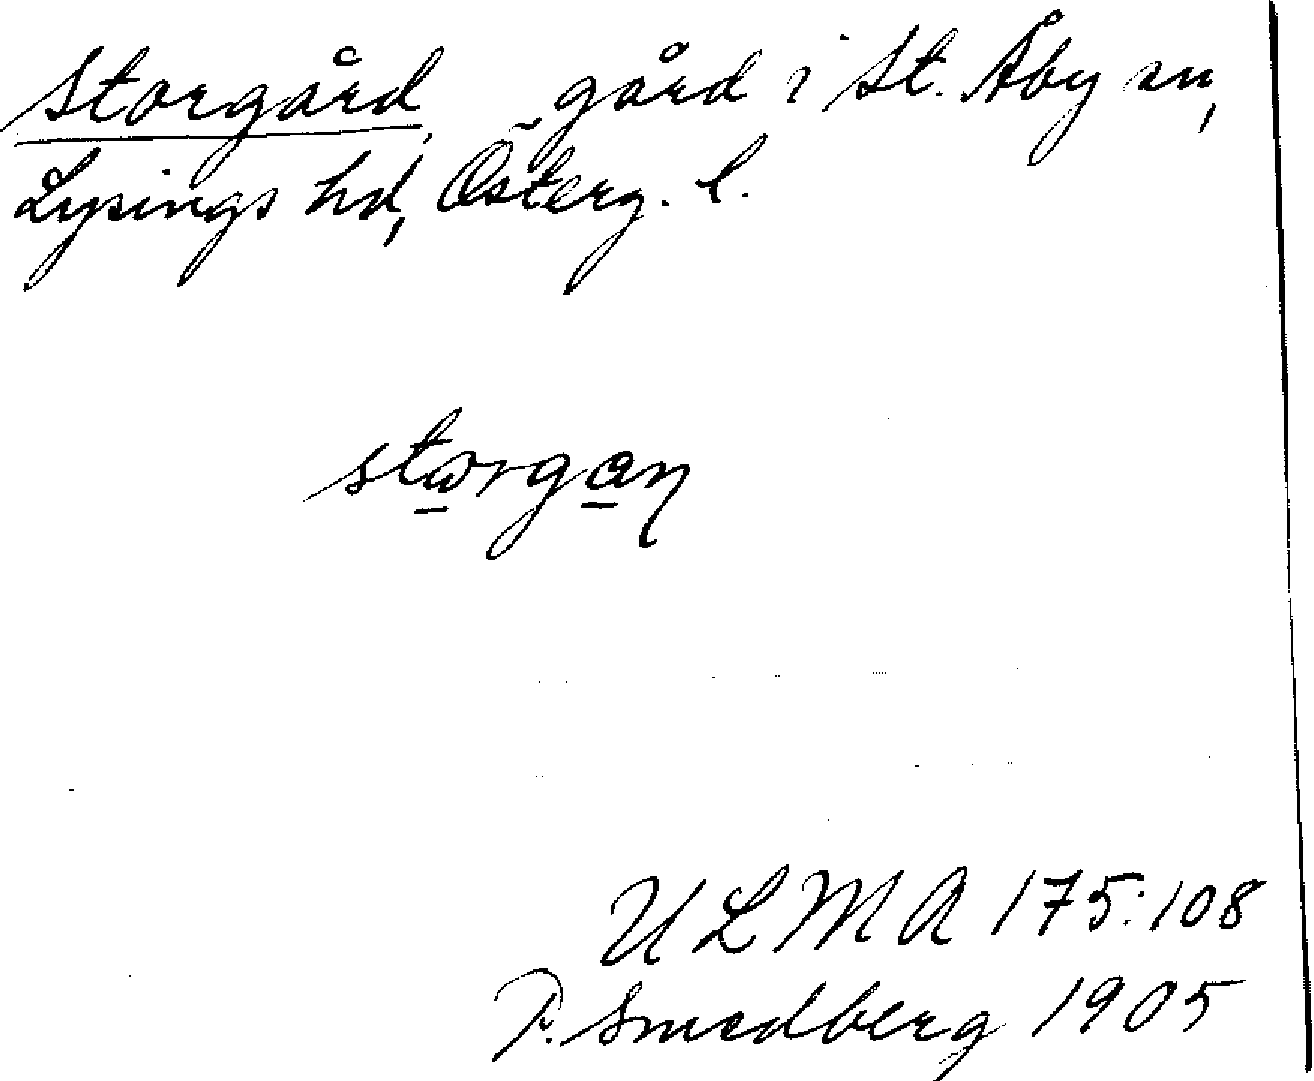 Storgård, gård i St. Åby sn,
Lysings hd, Österg. l.
ULMA 175:108
P. Smedberg 1905